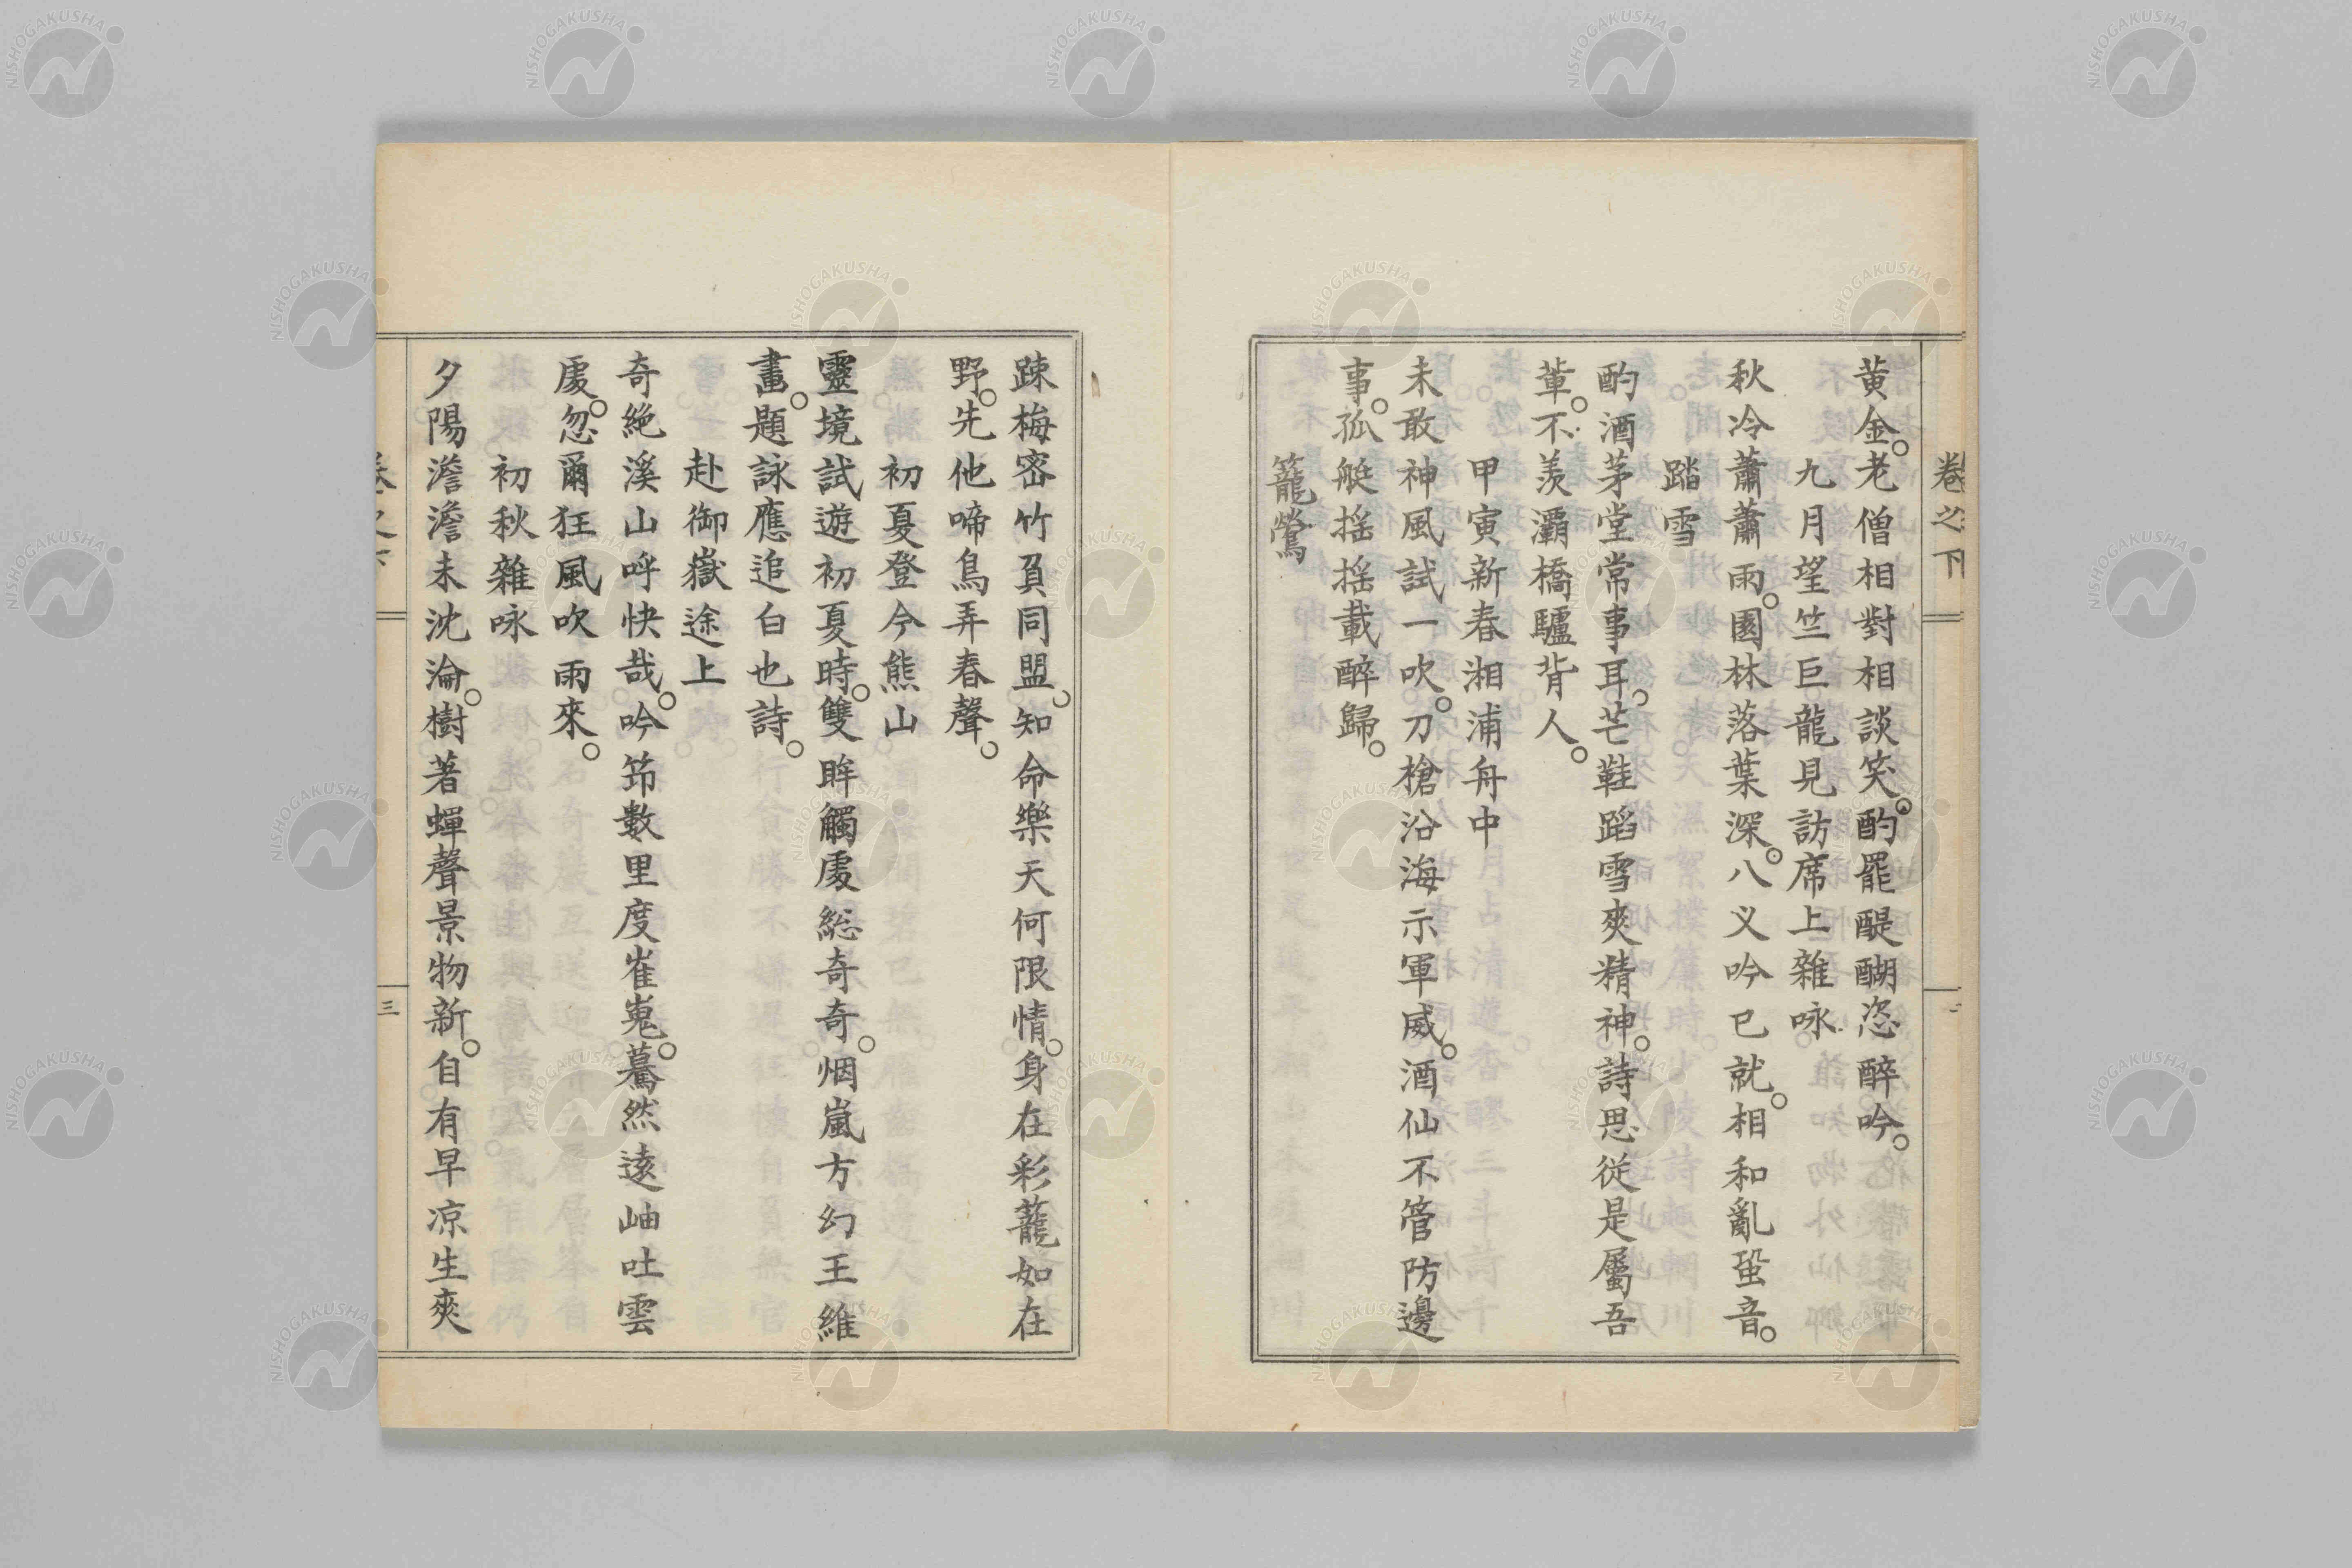 卷之下
黄金。老僧相對相談笑。酌罷醍醐恣醉吟。
九月望竺巨龍見訪席上雜咏
秋冷蕭蕭雨。園林落葉深。八叉吟已就。相和亂蛩音。
踏雪
酌酒茅堂常事耳。芒鞋蹈雪爽精神。詩思從是屬吾
輩。不羨灞橋驢背人。
甲寅新春湘浦舟中
未敢神風試一吹。刀槍沿海示軍威。酒仙不管防邊
事。孤艇搖搖載醉歸。
籠鶯
疎梅密竹負同盟。知命樂天何限情。身在彩蘢如在
野。先他啼鳥弄春聲。
初夏登今熊山
靈境試遊初夏時。雙眸觸處総奇奇。烟嵐方幻王維
畫。題詠應追白也詩。
赴御嶽途上
奇絶溪山呼快哉。吟筇數里度崔嵬。驀然遠岫吐雲
處。忽爾狂風吹雨來。
初秋雜咏
夕陽澹澹未沈淪。樹著蟬聲景物新。自有早凉生爽
卷之下
三
NISHOGAKUSHA